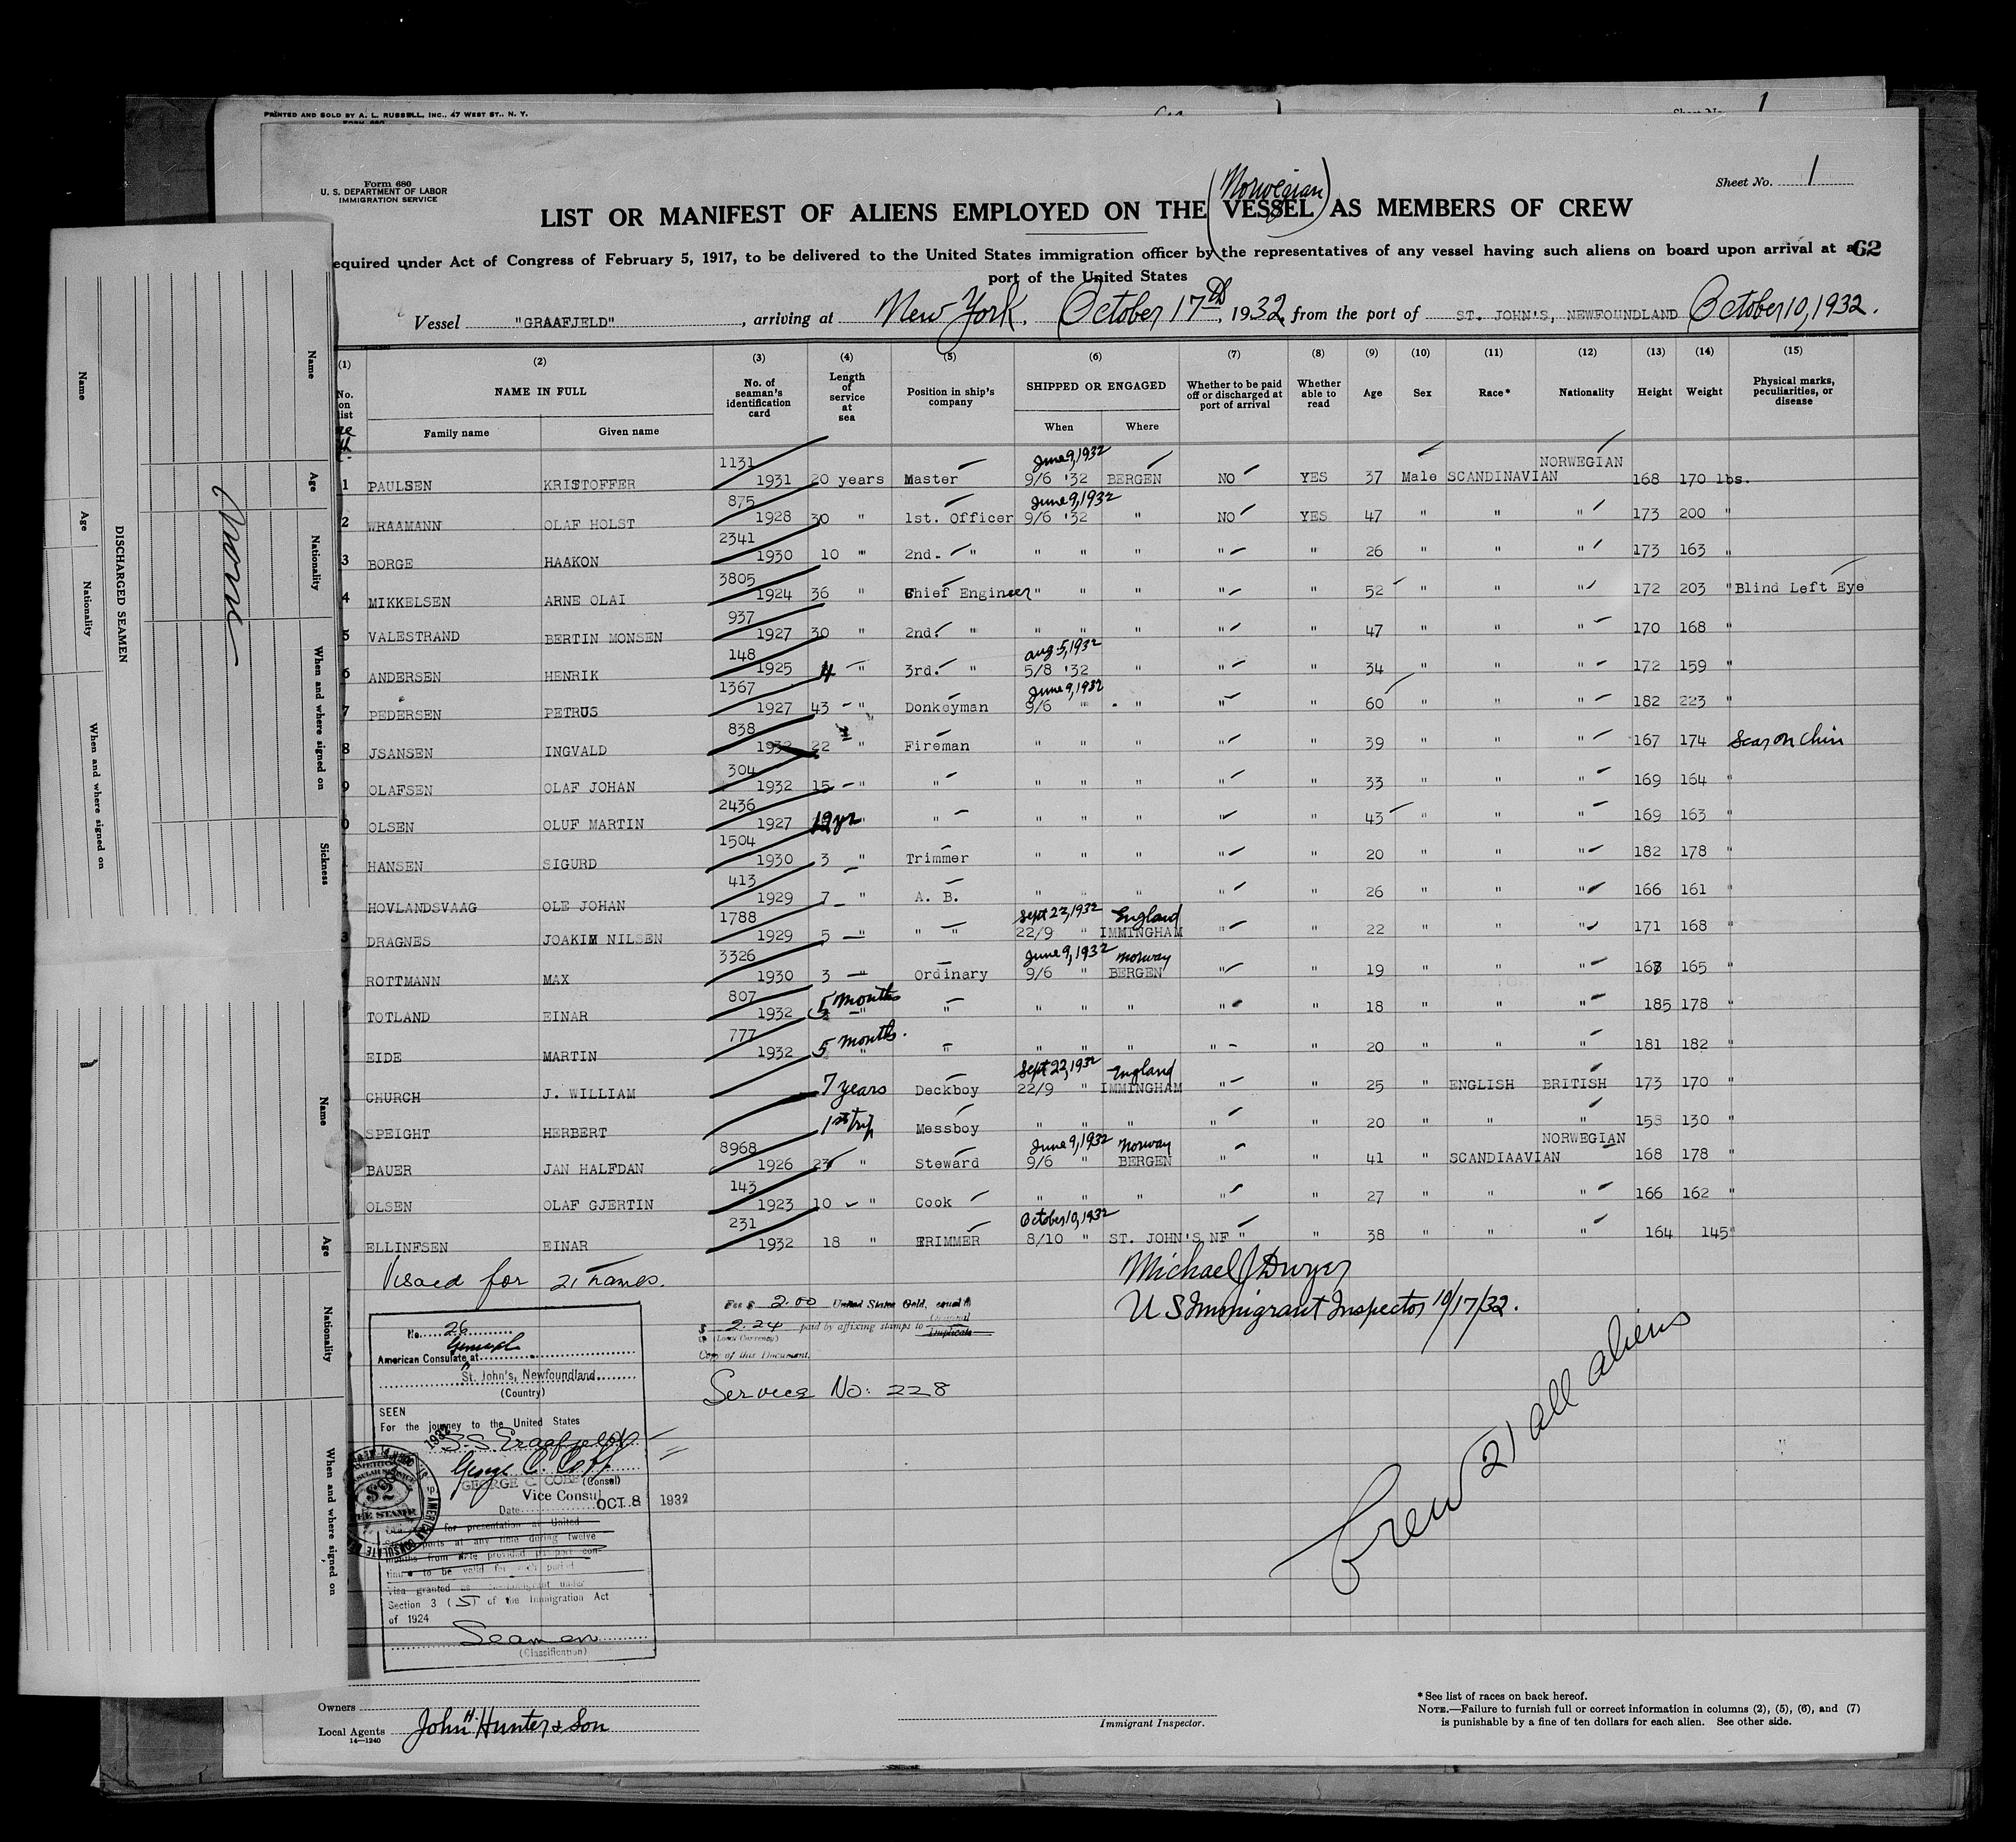 PRINTED AND SOLD BY A. L. RUSSELL, INC., 47 WEST ST., N. Y.
1
Form 680
U. S. DEPARTMENT OF LABOR
IMMIGRATION SERVICE
Sheet No. 1
(Norwegian)
LIST OR MANIFEST OF ALIENS EMPLOYED ON THE VESSEL AS MEMBERS OF CREW
equired under Act of Congress of February 5, 1917, to be delivered to the United States immigration officer by the representatives of any vessel having such aliens on board upon arrival at a 62
port of the United States
Vessel "GRAAFJELD", arriving at New York, October 17th, 1932, from the port of ST. JOHN'S, NEWFOUNDLAND October 10, 1932.
(1) (2) (3) (4) (5) (6) (7) (8) (9) (10) (11) (12) (13) (14) (15)
No. on list NAME IN FULL No. of seaman's identification card Length of service at sea Position in ship's company SHIPPED OR ENGAGED Whether to be paid off or discharged at port of arrival Whether able to read Age Sex Race* Nationality Height Weight Physical marks, peculiarities, or disease
Family name Given name When Where
1131 June 9, 1932 NORWEGIAN
1 PAULSEN KRISTOFFER 1931 20 years Master 9/6 '32 BERGEN NO YES 37 Male SCANDINAVIAN 168 170 lbs.
875 June 9, 1932
2 WRAAMANN OLAF HOLST 1928 30 " 1st. Officer 9/6 '32 " NO YES 47 " " " 173 200 "
2341
3 BORGE HAAKON 1930 10 " 2nd. " " " " " " 26 " " " 173 163 "
3805
4 MIKKELSEN ARNE OLAI 1924 36 " Chief Engineer " " " " " 52 " " " 172 203 " Blind Left Eye
937
5 VALESTRAND BERTIN MONSEN 1927 30 " 2nd. " " " " " " 47 " " " 170 168 "
148 Aug 5, 1932
6 ANDERSEN HENRIK 1925 4 " 3rd. " 5/8 '32 " " " 34 " " " 172 159 "
1367 June 9, 1932
7 PEDERSEN PETRUS 1927 43 " Donkeyman 9/6 " " " " 60 " " " 182 223 "
838
8 JSANSEN INGVALD 1932 22 " Fireman " " " " " 39 " " " 167 174 Scar on Chin
304
9 OLAFSEN OLAF JOHAN 1932 15 " " " " " " " 33 " " " 169 164 "
2436
0 OLSEN OLUF MARTIN 1927 12 yr " " " " " " " 43 " " " 169 163 "
1504
HANSEN SIGURD 1930 3 " Trimmer " " " " " 20 " " " 182 178 "
413
HOVLANDSVAAG OLE JOHAN 1929 7 " A. B. " " " " " 26 " " " 166 161 "
1788 Sept 22, 1932 England
3 DRAGNES JOAKIM NILSEN 1929 5 " " " 22/9 " IMMINGHAM " " 22 " " " 171 168 "
3326 June 9, 1932 Norway
ROTTMANN MAX 1930 3 " Ordinary 9/6 " BERGEN " " 19 " " " 165 "
807
TOTLAND EINAR 1932 5 months " " " " " " " 18 " " " 185 178 "
777
EIDE MARTIN 1932 5 months. " " " " " " " 20 " " " 181 182 "
Sept 22, 1932 England
CHURCH J. WILLIAM 7 years Deckboy 22/9 " IMMINGHAM " " 25 " ENGLISH BRITISH 173 170 "
SPEIGHT HERBERT 1st trip Messboy " " " " " 20 " " " 158 130 "
8968 June 9, 1932 Norway NORWEGIAN
BAUER JAN HALFDAN 1926 23 " Steward 9/6 " BERGEN " " 41 " SCANDIAAVIAN 168 178 "
143
OLSEN OLAF GJERTIN 1923 10 " Cook " " " " " 27 " " " 166 162 "
231 October 10, 1932
ELLINFSEN EINAR 1932 18 " TRIMMER 8/10 " ST. JOHN'S NF " " 38 " " " 164 145 "
Visaed for 21 names.
Michael J Dwyer
U S Immigrant Inspector 10/17/32.
Crew 21 all aliens
Fee $ 2.00 United States Gold, equal to
$ 2.24 paid by affixing stamps to Original
(Local Currency) Duplicate
Copy of this Document.
Service No: 228
No. 26
General
American Consulate at
St. John's, Newfoundland
(Country)
SEEN
For the journey to the United States
S.S. Graafjeld
George C. Cobb
GEORGE C. COBB (Consul)
Vice Consul
Date OCT 8 1932
for presentation at United
ports at any time during twelve
months from date provided passport con-
tinues to be valid for such period
Visa granted as
Section 3 (5) of the Immigration Act
of 1924
Seamen
(Classification)
AMERICAN CONSULATE
$2
FEE STAMP
Owners
Local Agents John H. Hunter & Son
14—1240
Immigrant Inspector.
* See list of races on back hereof.
NOTE.—Failure to furnish full or correct information in columns (2), (5), (6), and (7)
is punishable by a fine of ten dollars for each alien. See other side.
DISCHARGED SEAMEN
Name Age Nationality When and where signed on
Name Age Nationality When and where signed on Sickness
None
Name Age Nationality When and where signed on